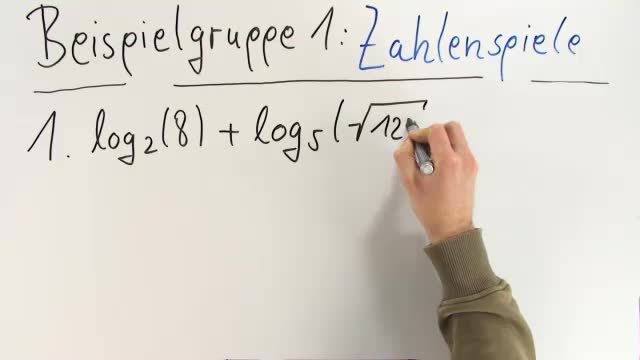 Beispielgruppe 1: Zahlenspiele
1. log₂(8) + log₅(√12